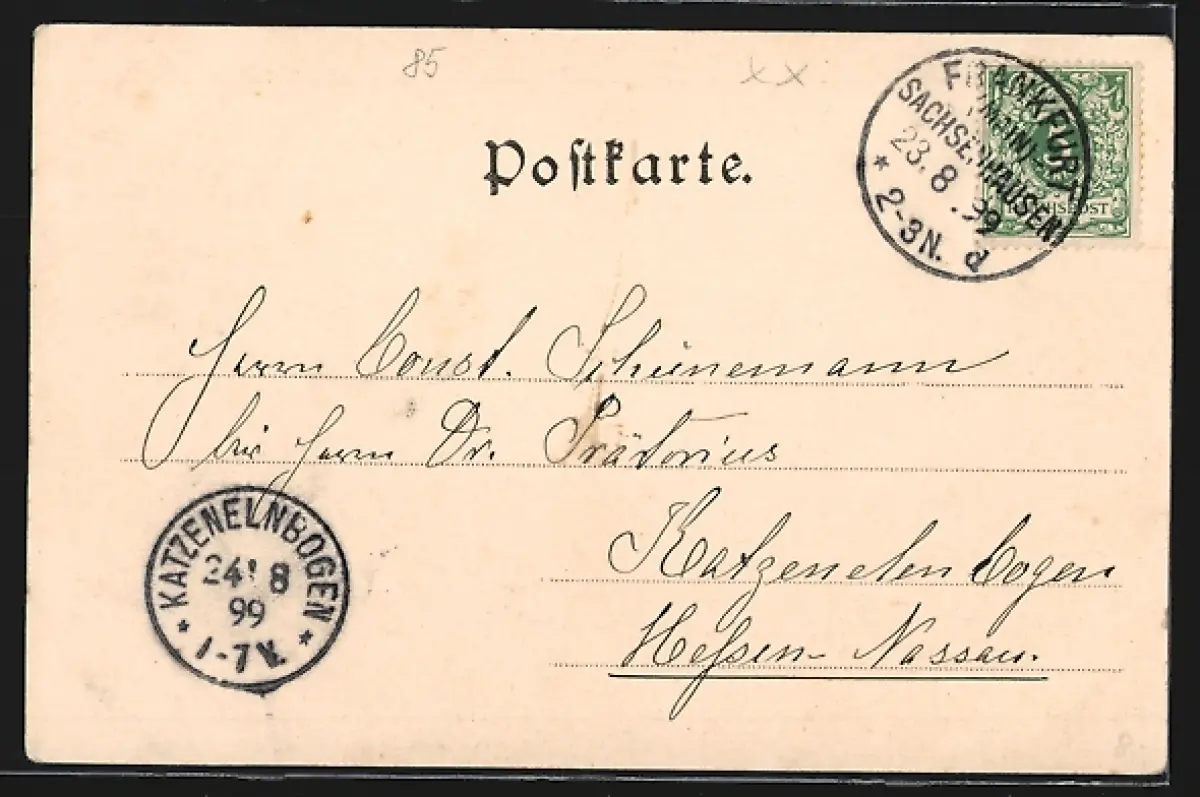 85 xx
Postkarte.
FRANKFURT
(MAIN)-
SACHSENHAUSEN
23.8.99
* 2-3N. d
REICHSPOST
Herrn Const. Schünemann
bei Herrn Dr. Prätorius
Katzenelenbogen
Hessen-Nassau.
* KATZENELNBOGEN *
24 8
99
1-7V.
8